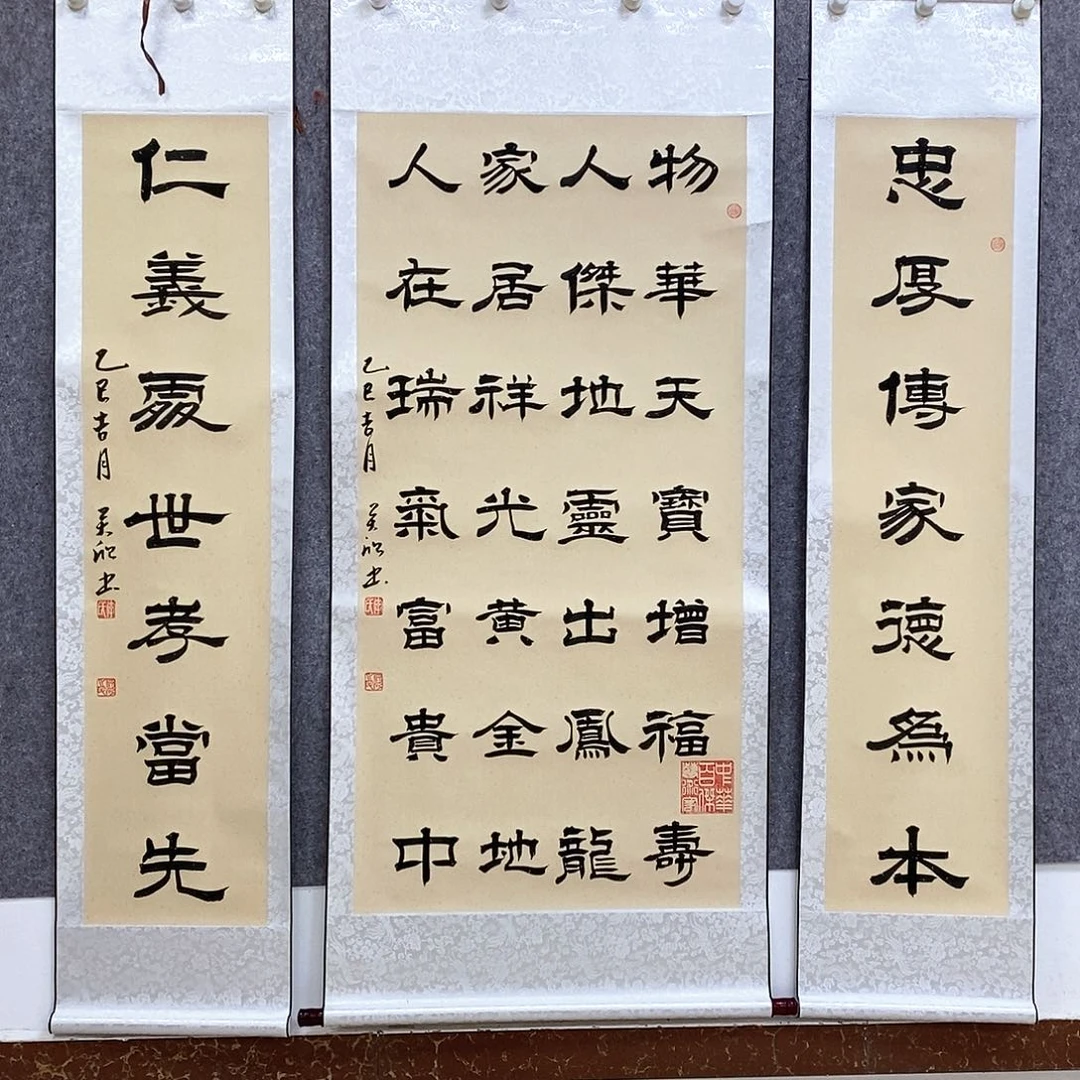 忠厚傳家德為本
物華天寶增福壽
人傑地靈出鳳龍
家居祥光黃金地
人在瑞氣富貴中
乙巳吉月
中華
百傑
仁義處世孝當先
乙巳吉月